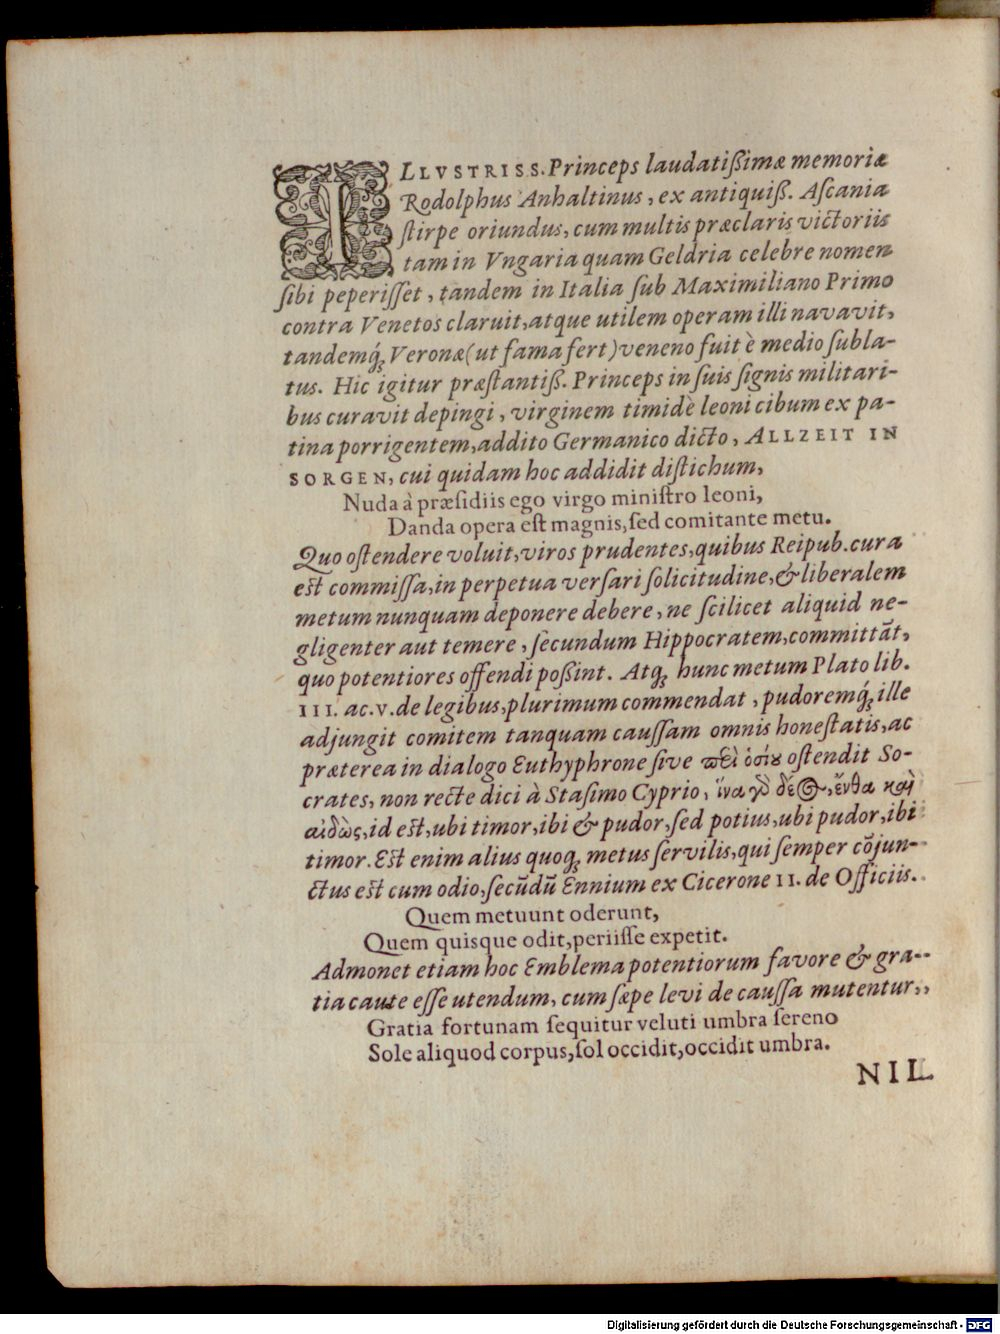 ILLVSTRISS. Princeps laudatißimæ memoriæ
Rodolphus Anhaltinus, ex antiquiß. Aſcania
ſtirpe oriundus, cum multis præclaris victoriis
tam in Vngaria quam Geldria celebre nomen
ſibi peperiſſet, tandem in Italia ſub Maximiliano Primo
contra Venetos claruit, atque utilem operam illi navavit,
tandemq́ꝫ Veronæ (ut fama fert) veneno fuit è medio ſubla-
tus. Hic igitur præſtantiß. Princeps in ſuis ſignis militari-
bus curavit depingi, virginem timidè leoni cibum ex pa-
tina porrigentem, addito Germanico dicto, ALLZEIT IN
SORGEN, cui quidam hoc addidit diſtichum,
Nuda à præſidiis ego virgo miniſtro leoni,
Danda opera eſt magnis, ſed comitante metu.
Quo oſtendere voluit, viros prudentes, quibus Reipub. cura
eſt commiſſa, in perpetua verſari ſolicitudine, & liberalem
metum nunquam deponere debere, ne ſcilicet aliquid ne-
gligenter aut temere, ſecundum Hippocratem, committãt,
quo potentiores offendi poßint. Atqꝫ hunc metum Plato lib.
III. ac. v. de legibus, plurimum commendat, pudoremq́ꝫ ille
adjungit comitem tanquam cauſſam omnis honeſtatis, ac
præterea in dialogo Euthyphrone ſive πεὶ ὁσίȣ oſtendit So-
crates, non recte dici à Staſimo Cyprio, ἵνα γὸ δέος, ἔνθα καὶ
αιδὼς, id eſt, ubi timor, ibi & pudor, ſed potius, ubi pudor, ibi
timor. Eſt enim alius quoqꝫ metus ſervilis, qui ſemper cõjun-
ctus eſt cum odio, ſecũdũ Ennium ex Cicerone II. de Officiis.
Quem metuunt oderunt,
Quem quisque odit, periiſſe expetit.
Admonet etiam hoc Emblema potentiorum favore & gra-
tia caute eſſe utendum, cum ſæpe levi de cauſſa mutentur,
Gratia fortunam ſequitur veluti umbra ſereno
Sole aliquod corpus, ſol occidit, occidit umbra.
NIL
Digitalisierung gefördert durch die Deutsche Forschungsgemeinschaft - DFG